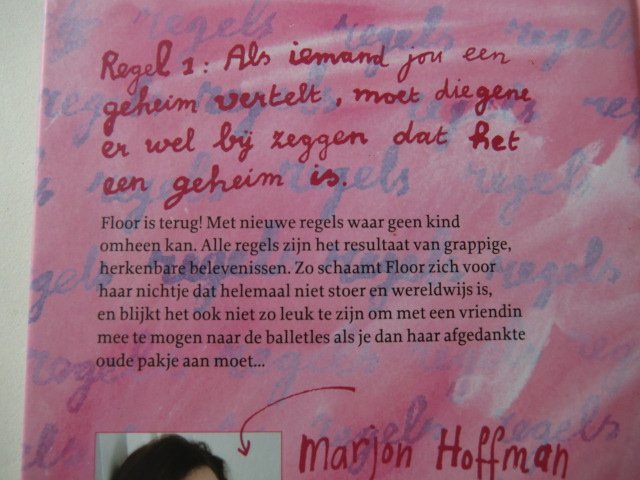 Regel 1: Als iemand jou een
geheim vertelt, moet diegene
er wel bij zeggen dat het
een geheim is.
Floor is terug! Met nieuwe regels waar geen kind
omheen kan. Alle regels zijn het resultaat van grappige,
herkenbare belevenissen. Zo schaamt Floor zich voor
haar nichtje dat helemaal niet stoer en wereldwijs is,
en blijkt het ook niet zo leuk te zijn om met een vriendin
mee te mogen naar de balletles als je dan haar afgedankte
oude pakje aan moet...
Marjon Hoffman